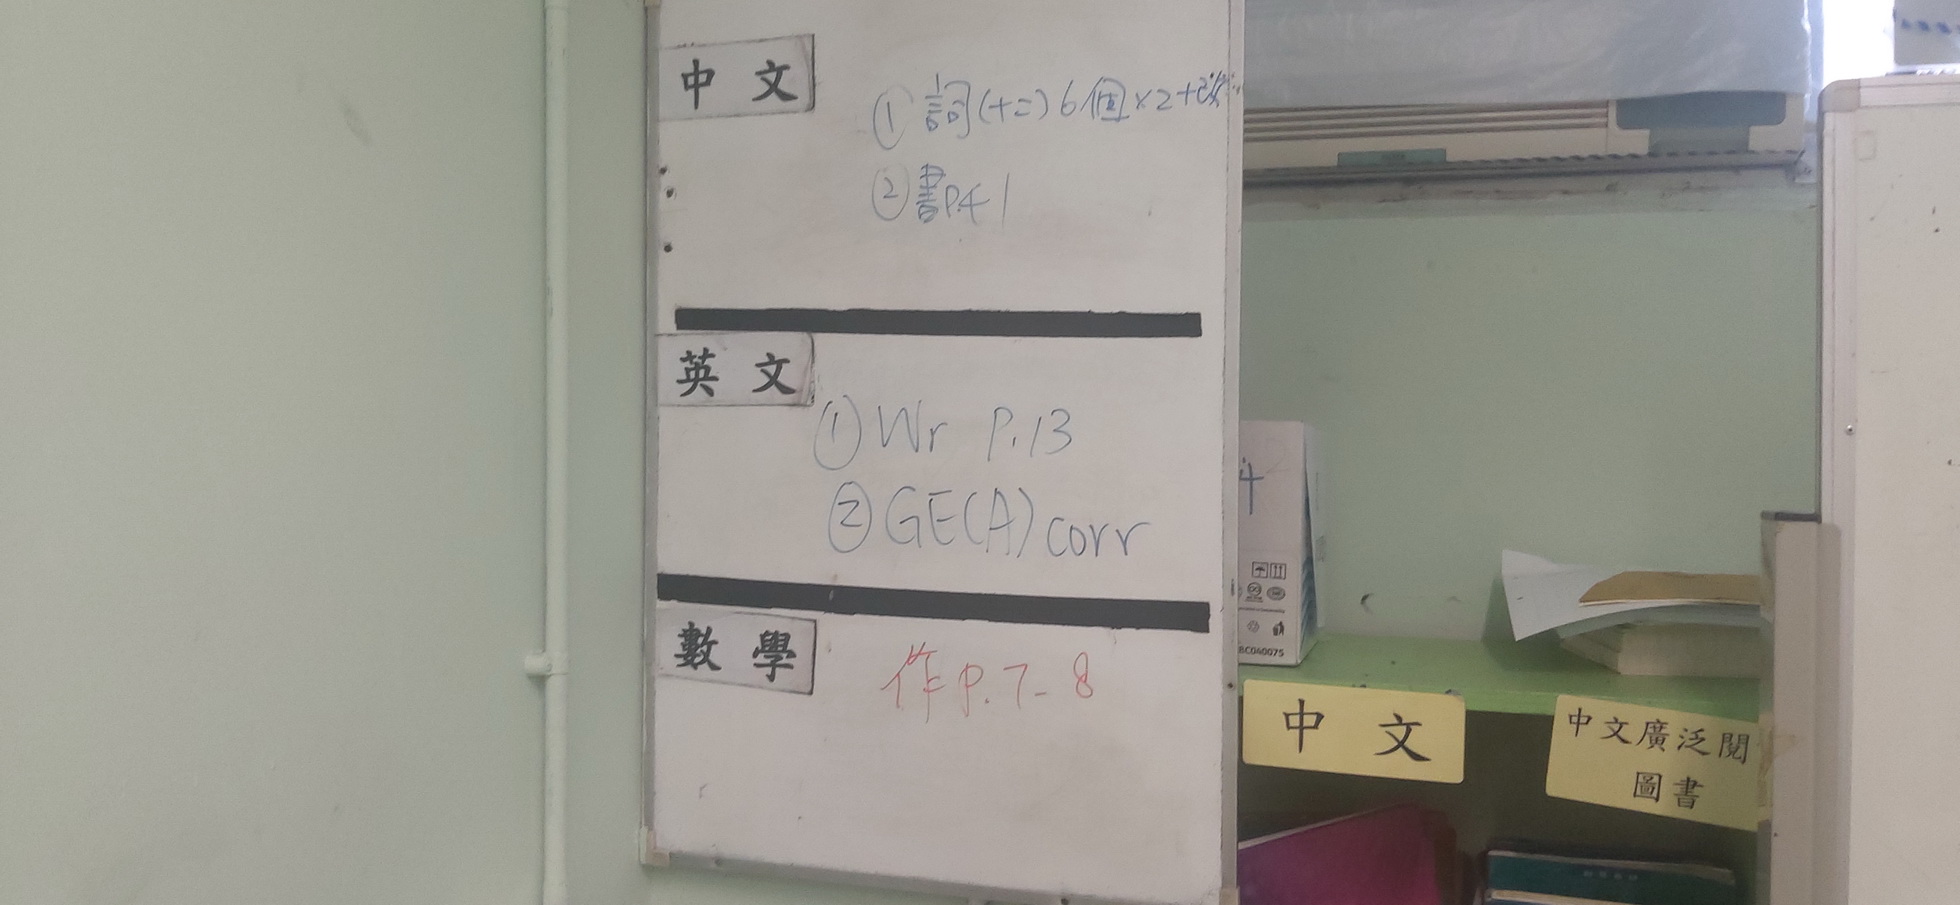 中文
①詞(十二)6個x2+改
②書P.41
英文
①Wr P.13
②GE(A) corr
數學
作P.7-8
4
BC040075
中文
中文廣泛閱
圖書